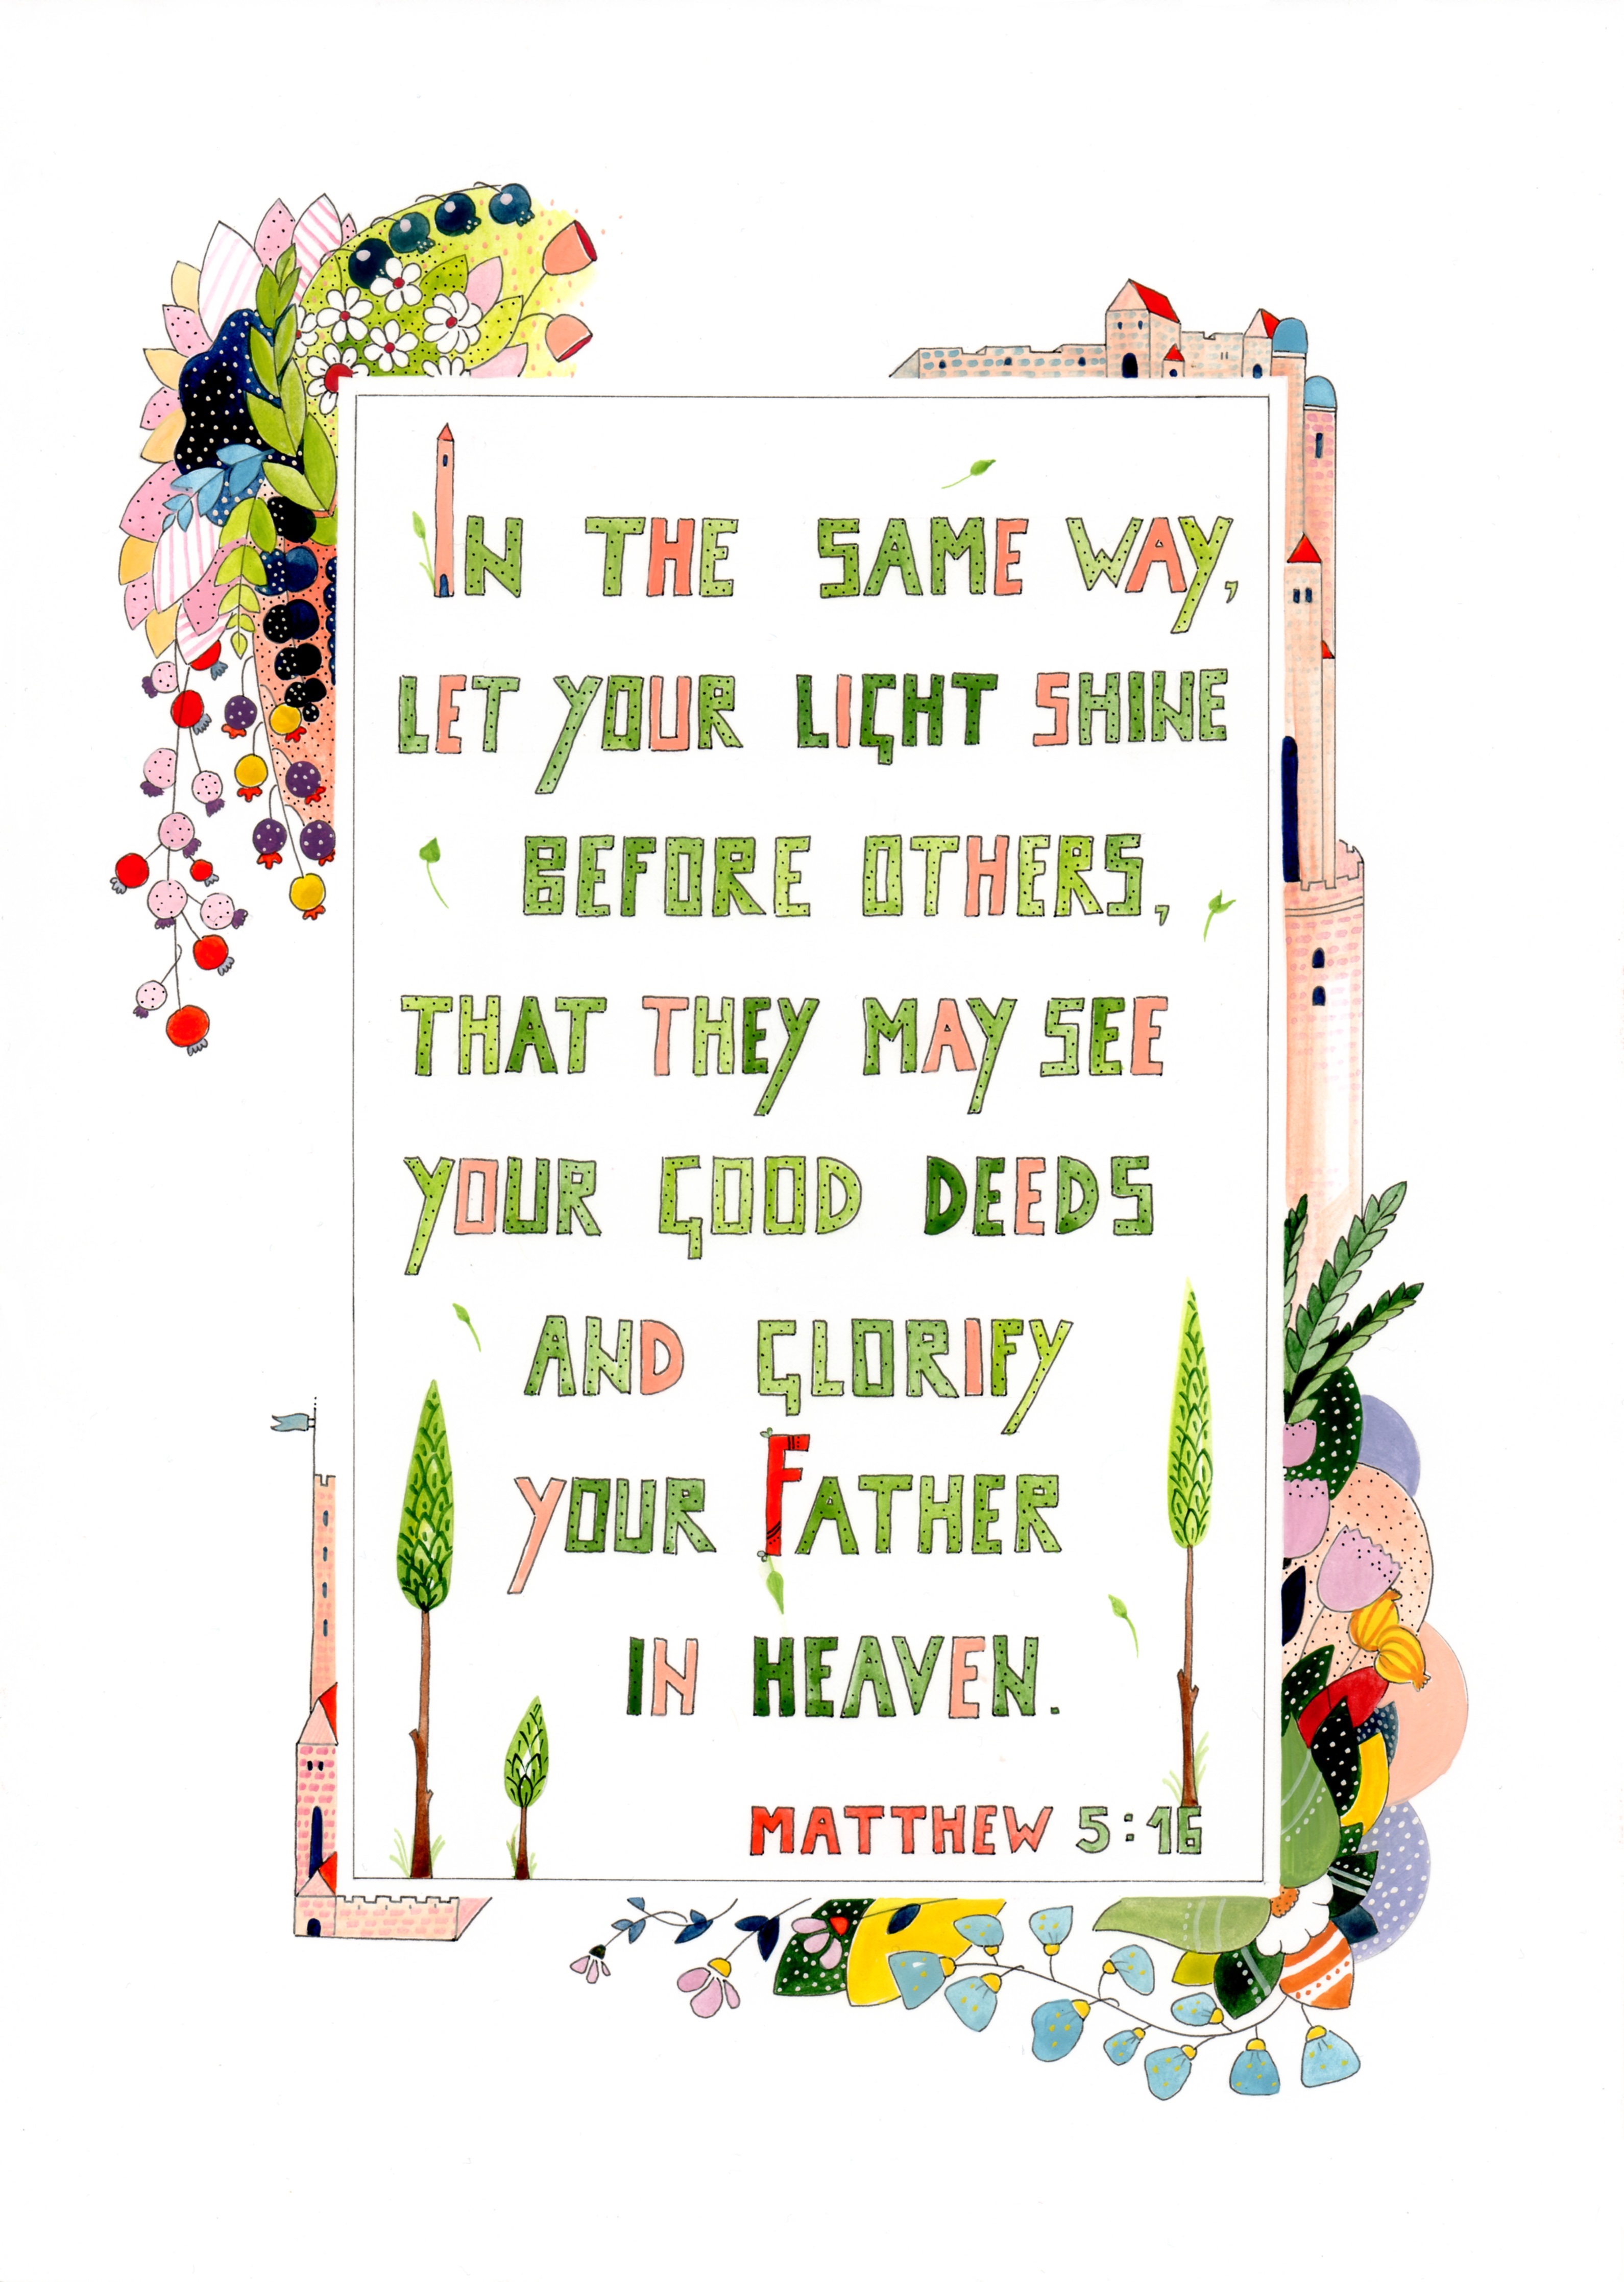 IN THE SAME WAY,
LET YOUR LIGHT SHINE
BEFORE OTHERS,
THAT THEY MAY SEE
YOUR GOOD DEEDS
AND GLORIFY
YOUR FATHER
IN HEAVEN.
MATTHEW 5:16